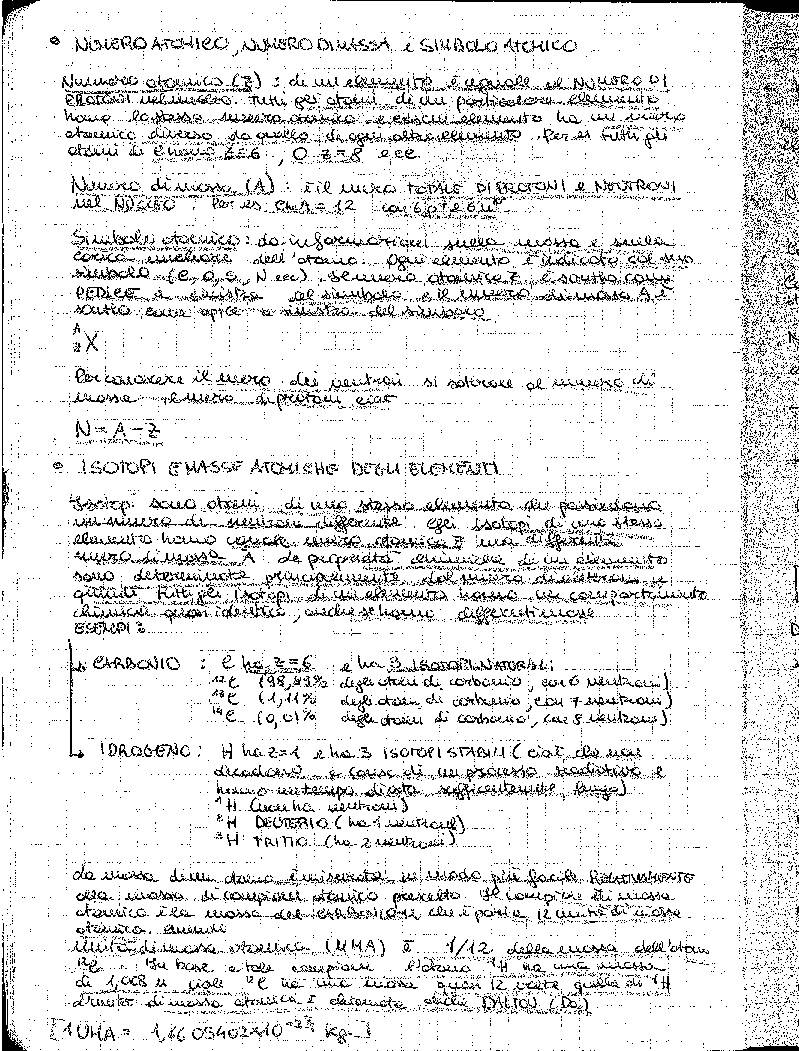 • NUMERO ATOMICO, NUMERO DI MASSA e SIMBOLO ATOMICO
Numero atomico (Z) : di un elemento è uguale al NUMERO DI
PROTONI nel nucleo. Tutti gli atomi di un particolare elemento
hanno lo stesso numero atomico e ciascun elemento ha un numero
atomico diverso da quello di ogni altro elemento. Per es tutti gli
atomi di C hanno Z=6, O Z=8 ecc
Numero di massa (A) : è il numero TOTALE DI PROTONI e NEUTRONI
nel NUCLEO. Per es C ha A=12 con 6p⁺ e 6n⁰
Simbolo atomico: da informazioni sulla massa e sulla
carica nucleare dell'atomo. Ogni elemento è indicato col suo
simbolo (C, O, S, N ecc). Il numero atomico Z è scritto come
PEDICE a sinistra del simbolo e il numero di massa A è
scritto come apice a sinistra del simbolo
A
Z X
Per conoscere il numero dei neutroni si sottrae al numero di
massa il numero di protoni cioè
N = A - Z
• ISOTOPI E MASSE ATOMICHE DEGLI ELEMENTI
Isotopi sono atomi di uno stesso elemento che possiedono
un numero di neutroni differente. Gli isotopi di uno stesso
elemento hanno uguale numero atomico Z ma differente
numero di massa A. Le proprietà chimiche di un elemento
sono determinate principalmente dal numero di elettroni e
quindi tutti gli isotopi di un elemento hanno un comportamento
chimico quasi identico, anche se hanno differenti masse
ESEMPI:
↳ CARBONIO : C ha Z=6 e ha 3 ISOTOPI NATURALI:
¹²C (98,89% degli atomi di carbonio, con 6 neutroni)
¹³C (1,11% degli atomi di carbonio, con 7 neutroni)
¹⁴C (0,01% degli atomi di carbonio, con 8 neutroni)
↳ IDROGENO: H ha Z=1 e ha 3 ISOTOPI STABILI (cioè che non
decadono a causa di un processo radioattivo e
hanno un tempo di vita sufficientemente lungo)
¹H (non ha neutroni)
²H DEUTERIO (ha 1 neutrone)
³H TRITIO (ha 2 neutroni)
La massa di un atomo è misurata in modo più facile RELATIVAMENTE
alla massa di campione atomico prescelto. Il campione di massa
atomico è la massa del CARBONIO 12 che è pari a 12 unità di massa
atomica. Quindi
Unità di massa atomica (UMA) è 1/12 della massa dell'atomo
¹²C. In base a tale campione l'atomo ¹H ha una massa
di 1,008 u cioè ¹²C ha una massa quasi 12 volte quella di ¹H
L'unità di massa atomica è chiamata anche DALTON (Da)
[1 UMA = 1,6605402×10⁻²⁷ kg]